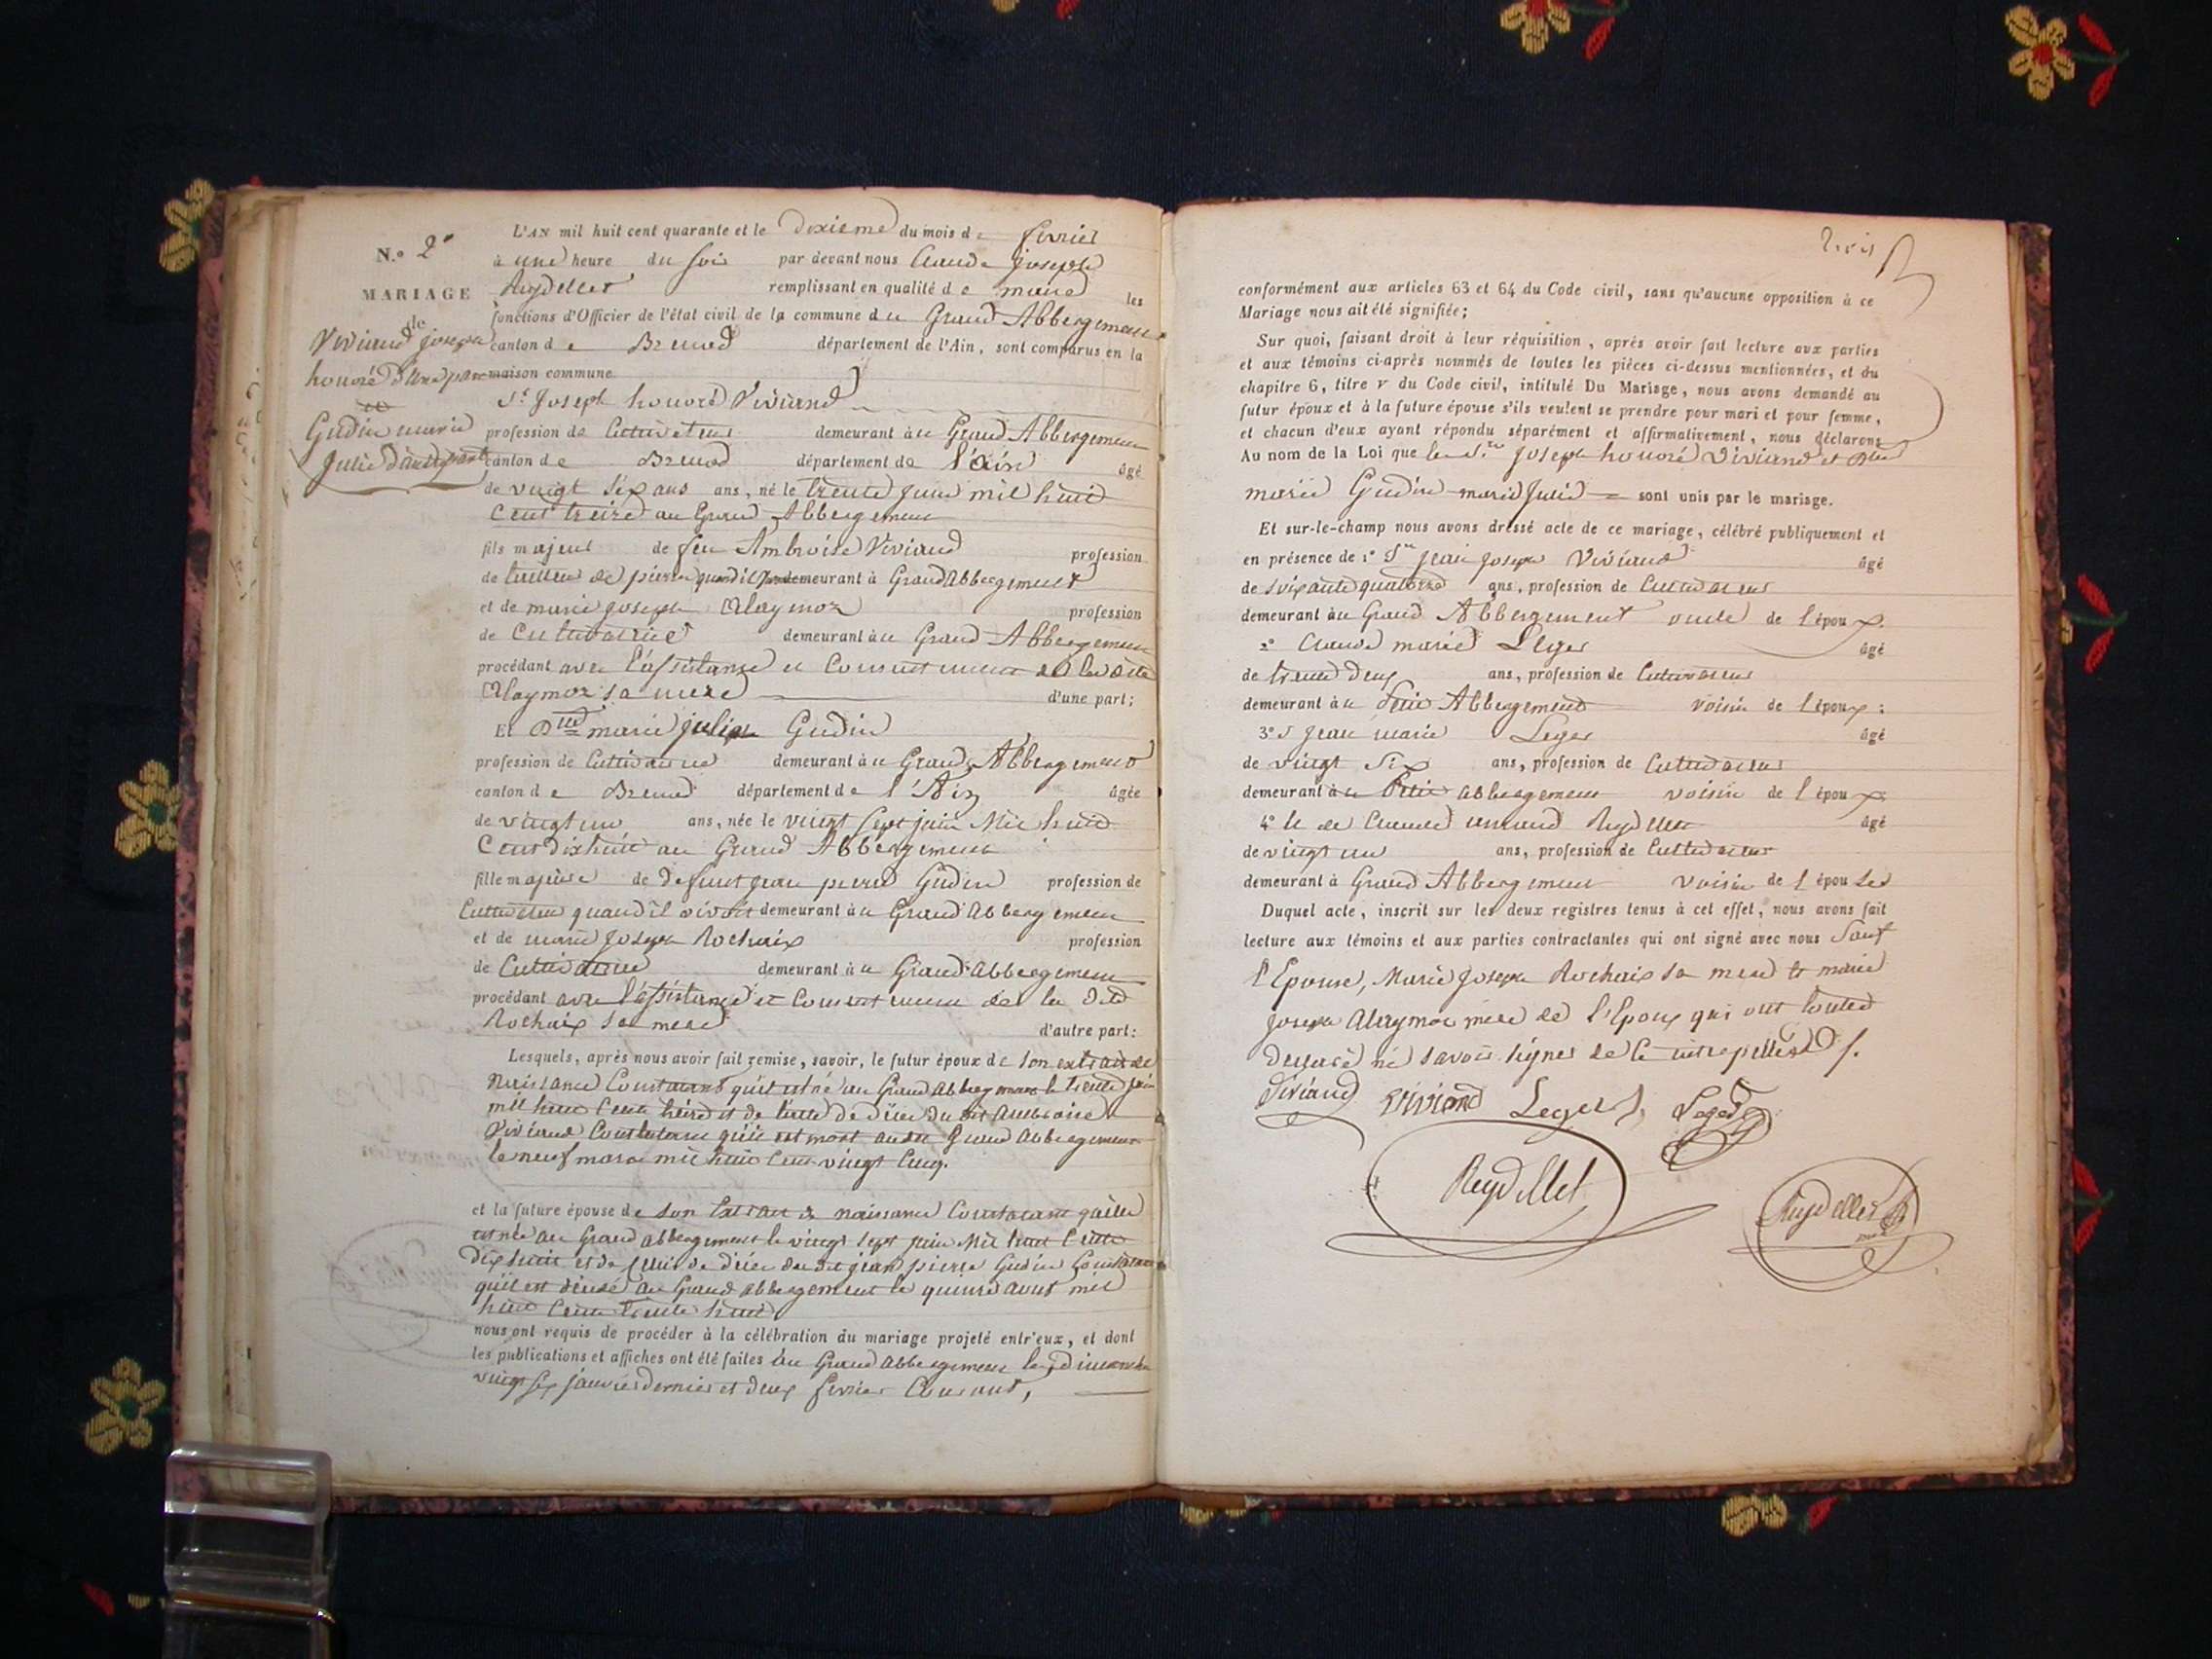 N.o 2e
MARIAGE
de
Viviand joseph
honoré d'une part
et
Gudin marie
Julie d'autre part
L'AN mil huit cent quarante et le dixieme du mois de fevrier
à une heure du soir par devant nous Claude joseph
Reydellet remplissant en qualité de maire les
fonctions d'Officier de l'état civil de la commune du Grand Abbergement
canton de Brenod département de l'Ain, sont comparus en la
maison commune
Sr Joseph honoré Viviand
profession de Cultivateur demeurant au Grand Abbergement
canton de Brenod département de l'ain âgé
de vingt six ans ans, né le trente juin mil huit
Cent treize au Grand Abbergement
fils majeur de feu Ambroise Viviand profession
de tailleur de pierre quand il demeurant à Grand Abbergement
et de marie joseph Alaymoz profession
de Cultivatrice demeurant au Grand Abbergement
procédant avec l'assistance et Consentement de la dite
Alaymoz sa mere d'une part;
Et Dlle marie julie Gudin
profession de Cultivatrice demeurant au Grand Abbergement
canton de Brenod département de l'Ain âgée
de vingt un ans, née le vingt sept juin Mil huit
Cent dix huit au Grand Abbergement
fille majeure de defunt jean pierre Gudin profession de
Cultivateur quand il vivoit demeurant au Grand Abbergement
et de marie joseph Rochaix profession
de Cultivatrice demeurant au Grand Abbergement
procédant avec l'assistance et Consentement de la dite
Rochaix sa mere d'autre part:
Lesquels, après nous avoir fait remise, savoir, le futur époux de son extrait de
Naissance Constatant qu'il est né au Grand Abbergement le trente juin
mil huit Cent treize et de l'acte de décer du dit Ambroise
Viviand Constatant qu'il est mort au dit Grand Abbergement
le neuf mars mil huit Cent vingt Cinq.
et la future épouse de son Extrait de naissance Constatant qu'elle
est née au Grand abbergement le vingt sept juin Mil huit Cent
dix huit et de celui de décer du dit jean pierre Gudin Constatant
qu'il est décédé au Grand abbergement le quinze aout mil
huit Cent trente huit
nous ont requis de procéder à la célébration du mariage projeté entr'eux, et dont
les publications et affiches ont été faites au Grand Abbergement les dimanches
vingt six janvier dernier et deux fevrier Courant,
trois
conformément aux articles 63 et 64 du Code civil, sans qu'aucune opposition à ce
Mariage nous ait été signifiée;
Sur quoi, faisant droit à leur réquisition, après avoir fait lecture aux parties
et aux témoins ci-après nommés de toutes les pièces ci-dessus mentionnées, et du
chapitre 6, titre V du Code civil, intitulé Du Mariage, nous avons demandé au
futur époux et à la future épouse s'ils veulent se prendre pour mari et pour femme,
et chacun d'eux ayant répondu séparément et affirmativement, nous déclarons
Au nom de la Loi que le Sieur joseph honoré Viviand et Dlle
marie Gudin marie Julie sont unis par le mariage.
Et sur-le-champ nous avons dressé acte de ce mariage, célébré publiquement et
en présence de 1o Sr jean joseph Viviand âgé
de soixante quatorze ans, profession de Cultivateur
demeurant au Grand Abbergement oncle de l'époux.
2o Claude marie Leger âgé
de trente deux ans, profession de Cultivateur
demeurant au Petit Abbergement voisin de l'époux;
3o S jean marie Leger âgé
de vingt six ans, profession de Cultivateur
demeurant au Petit abbergement voisin de l'époux
4o et de Claude Reydellet âgé
de vingt un ans, profession de Cultivateur
demeurant à Grand Abbergement voisin de l'épouse
Duquel acte, inscrit sur les deux registres tenus à cet effet, nous avons fait
lecture aux témoins et aux parties contractantes qui ont signé avec nous Sauf
l'Epouse, Marie Joseph Rochaix sa mere et marie
joseph Alaymoz mere de l'Epoux qui ont toutes
declaré ne savoir signer de ce interpellées
Viviand Viviand Leger Leger
Reydellet
Reydellet